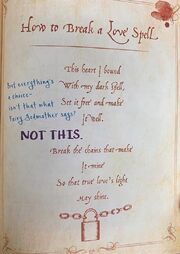 How to Break a Love Spell
This heart I bound
With my dark spell,
but everything's
a choice-
isn't that what
Fairy Godmother says?
Set it free and make
It well.
NOT THIS.
Break the chains that make
It mine
So that true love's light
May shine.